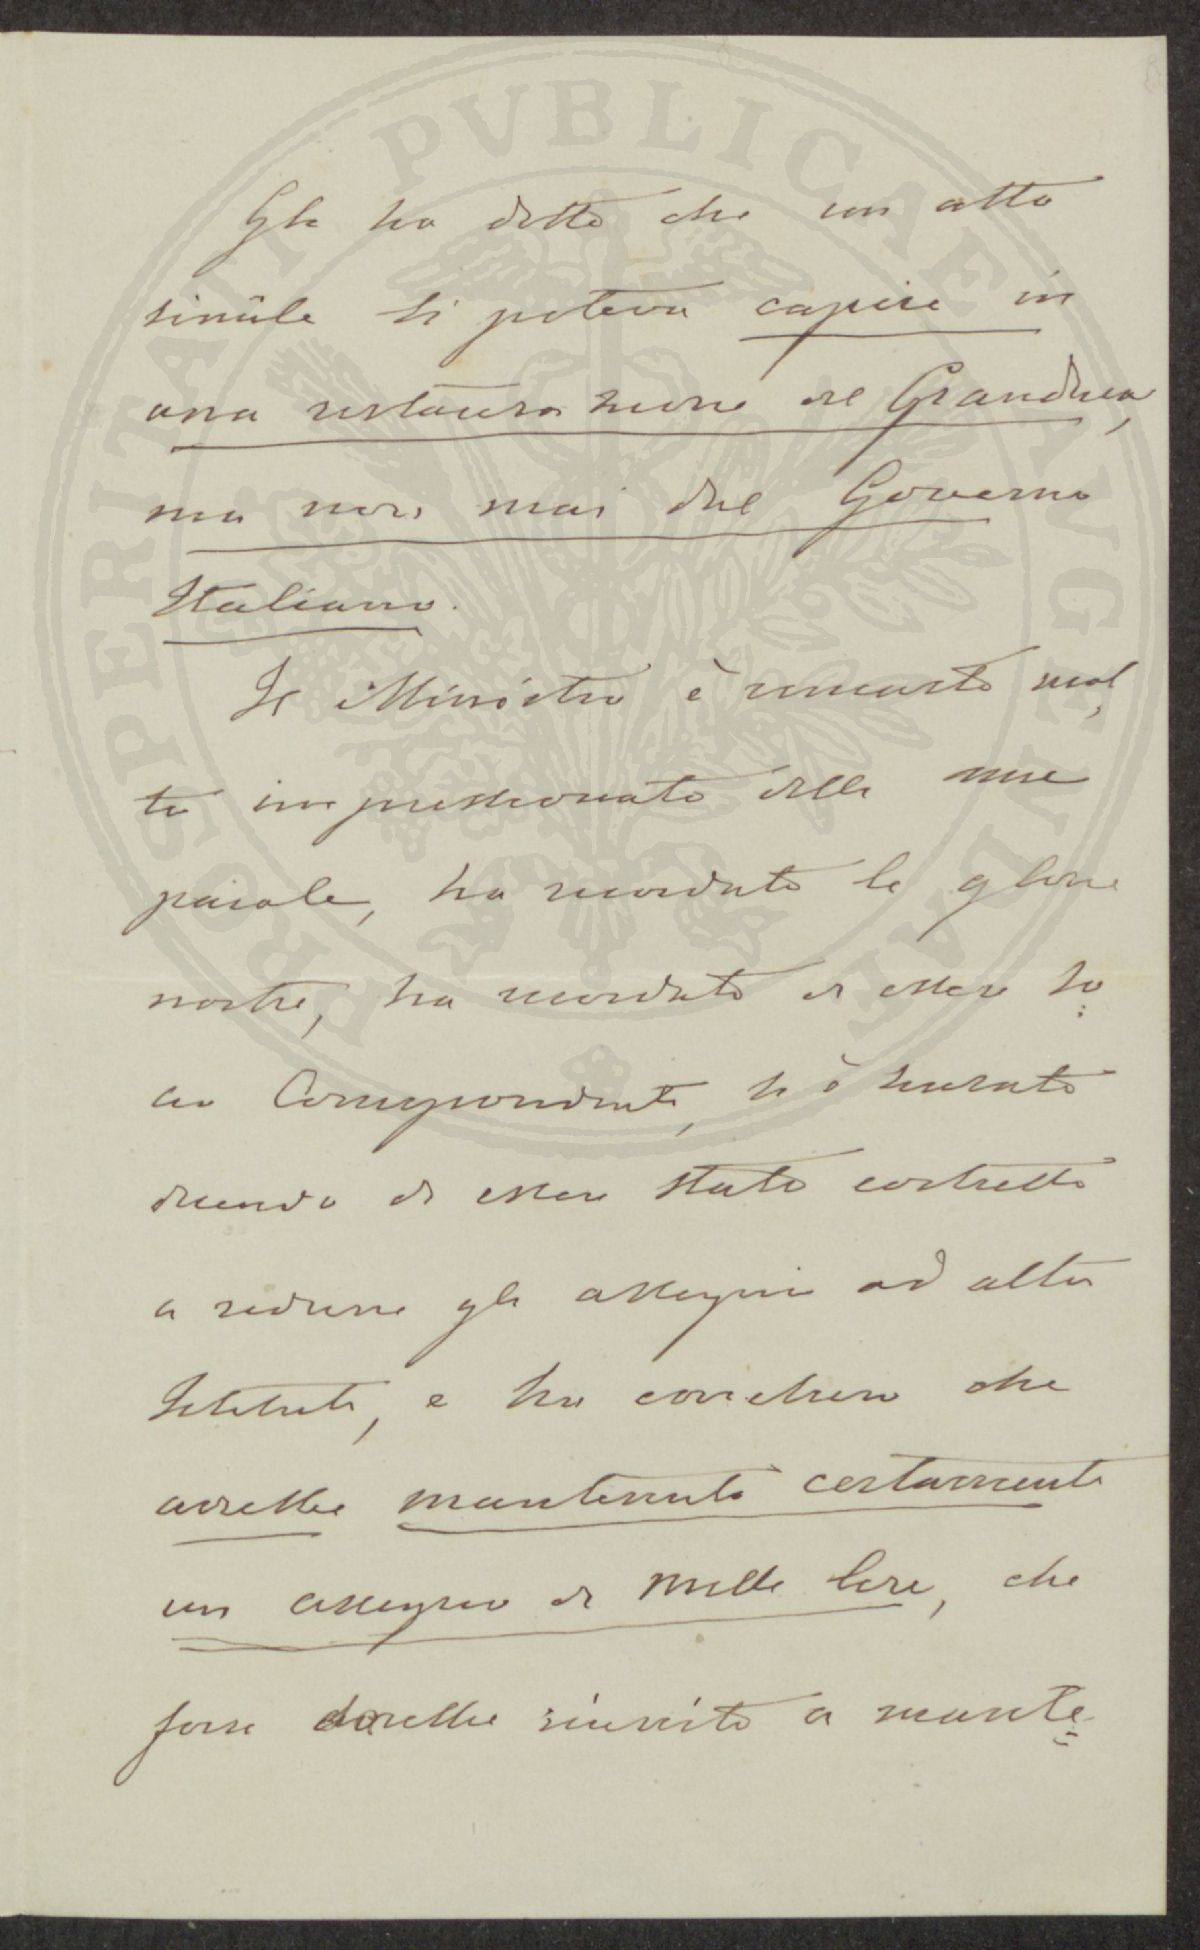 PROSPERITATI PVBLICAE AVGENDAE
Gli ho detto che un atto
simile si poteva capire in
una restaurazione del Granduca,
ma non mai del Governo
Italiano.
Il Ministro è rimasto mol
to impressionato delle mie
parole, ha ricordato le glorie
nostre, ha ricordato di essere So
cio Corrispondente, si è scusato
dicendo di essere stato costretto
a ridurre gli assegni ad altri
Istituti, e ha concluso che
avrebbe mantenuto certamente
un assegno di Mille lire, che
forse avrebbe riunito a mante=